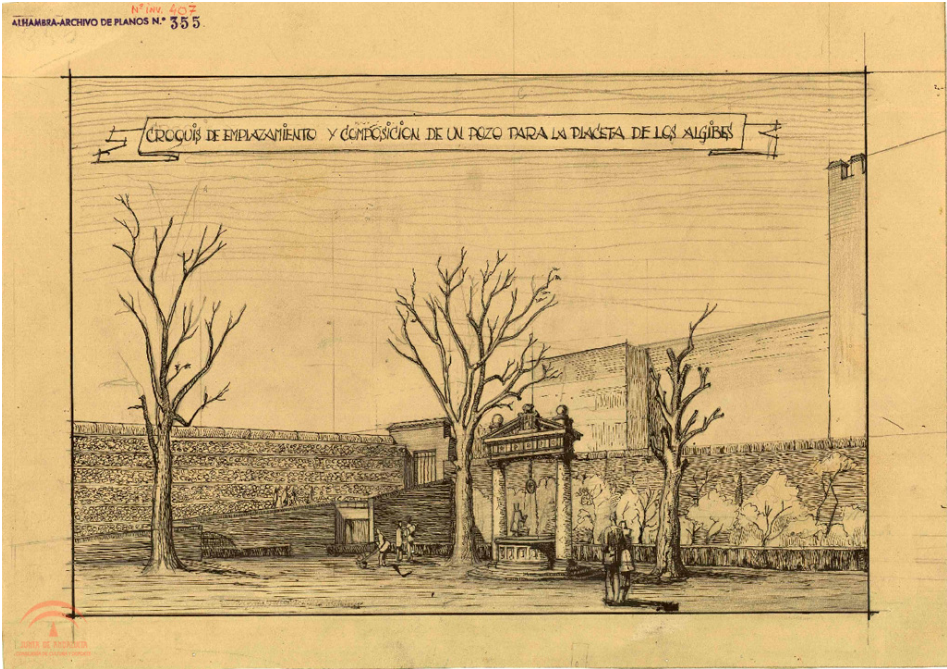 Nº INV. 407
ALHAMBRA-ARCHIVO DE PLANOS N.º 355
CROQUIS DE EMPLAZAMIENTO Y COMPOSICION DE UN POZO PARA LA PLACETA DE LOS ALGIBES
JUNTA DE ANDALUCIA